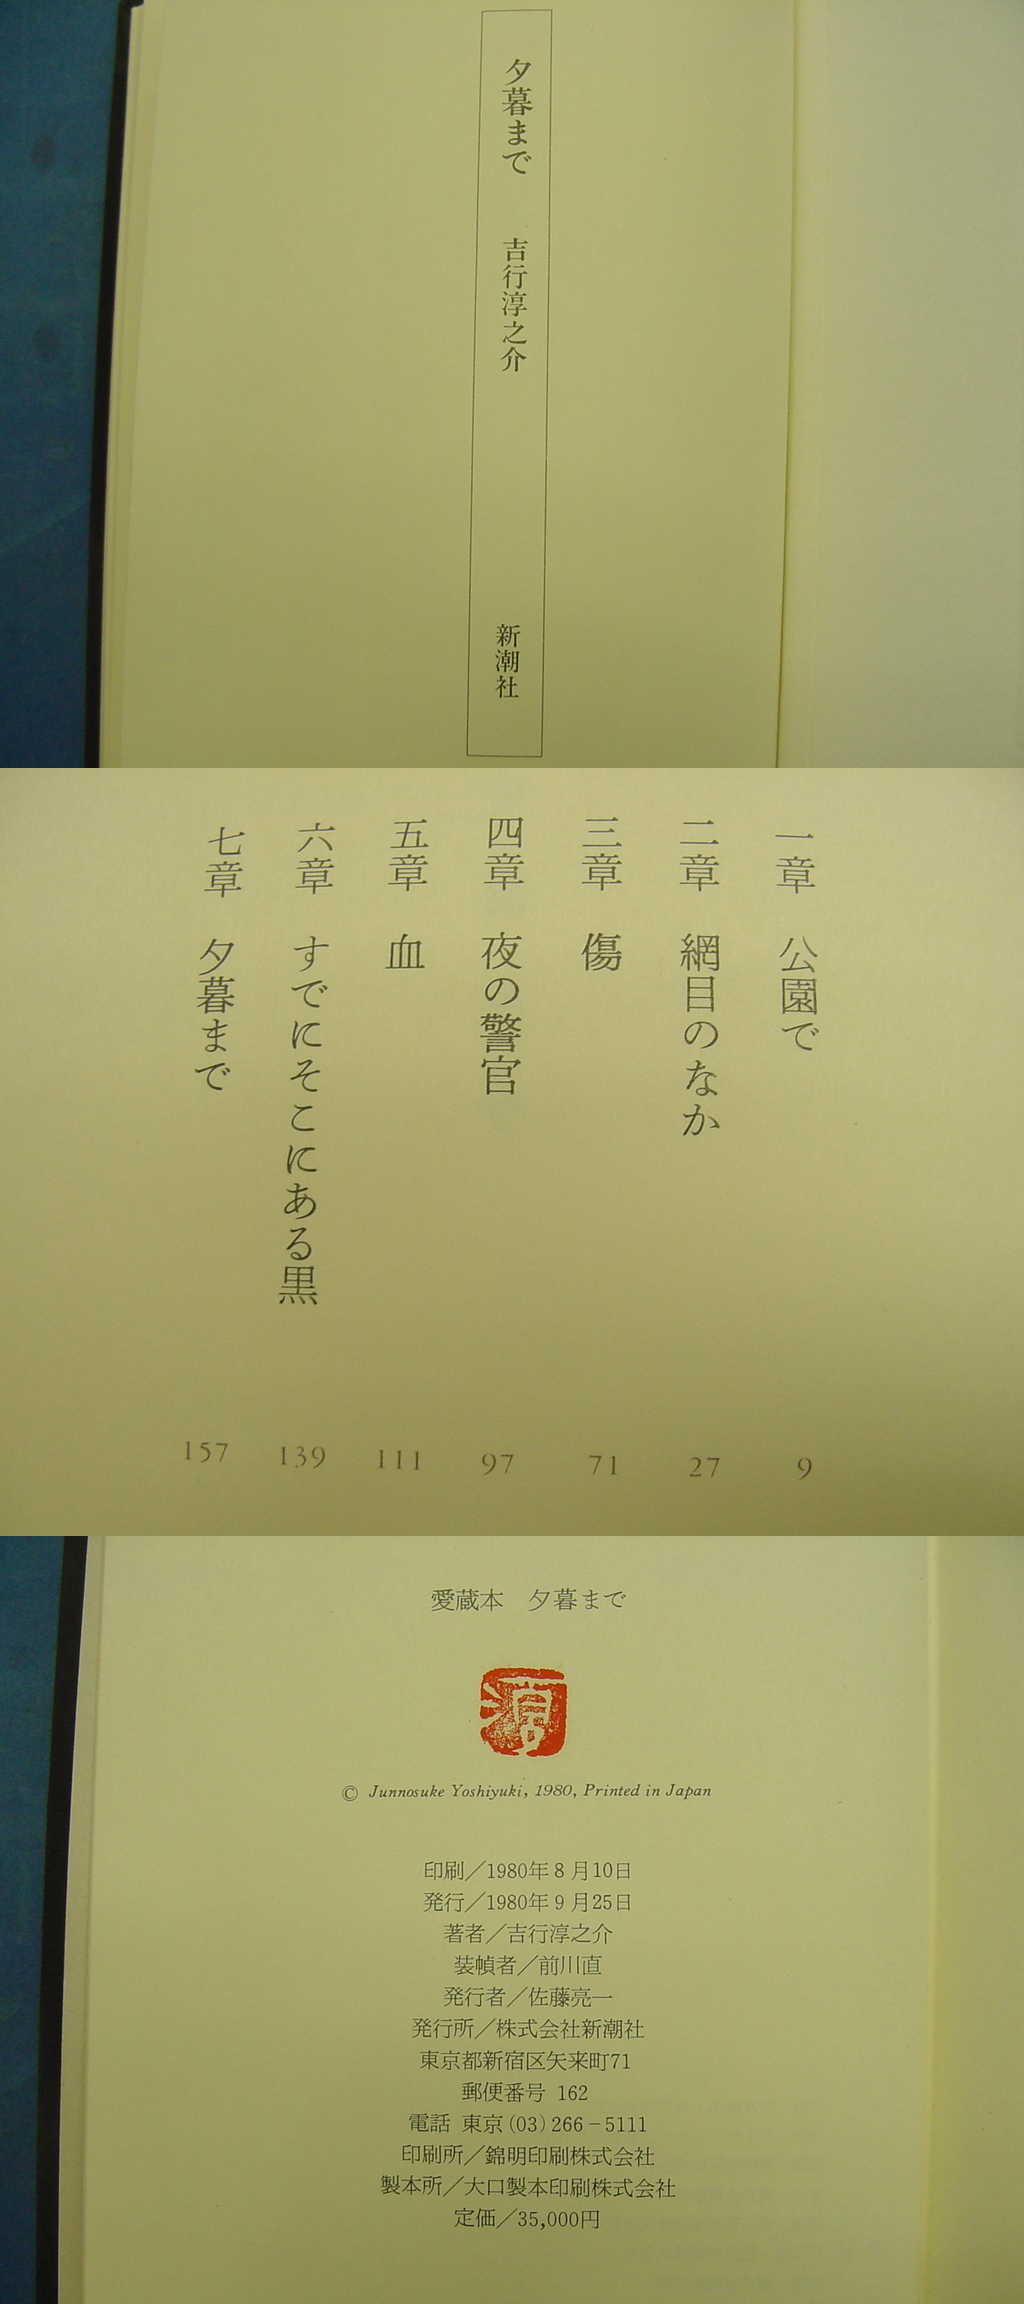 夕暮まで　吉行淳之介　新潮社
一章　公園で　9
二章　網目のなか　27
三章　傷　71
四章　夜の警官　97
五章　血　111
六章　すでにそこにある黒　139
七章　夕暮まで　157
愛蔵本　夕暮まで
© Junnosuke Yoshiyuki, 1980, Printed in Japan
印刷／1980年8月10日
発行／1980年9月25日
著者／吉行淳之介
装幀者／前川直
発行者／佐藤亮一
発行所／株式会社新潮社
東京都新宿区矢来町71
郵便番号 162
電話 東京(03)266－5111
印刷所／錦明印刷株式会社
製本所／大口製本印刷株式会社
定価／35,000円